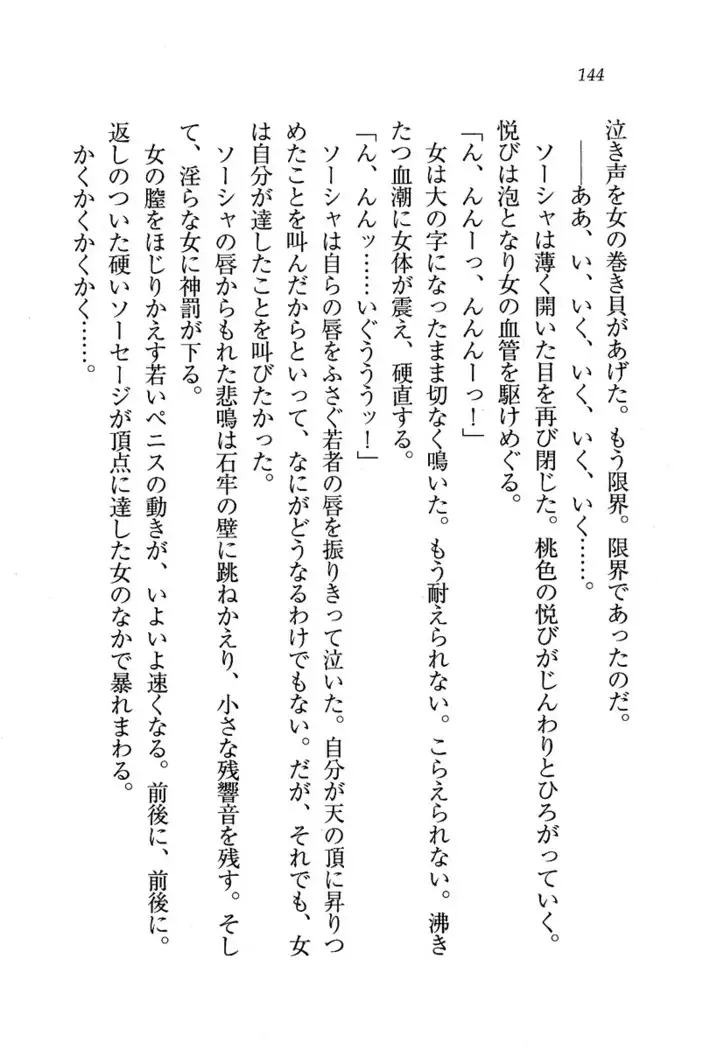 144
泣き声を女の巻き貝があげた。もう限界。限界であったのだ。
――ああ、い、いく、いく、いく、いく……。
ソーシャは薄く開いた目を再び閉じた。桃色の悦びがじんわりとひろがっていく。
悦びは泡となり女の血管を駆けめぐる。
「ん、んんーっ、んんんーっ！」
女は大の字になったまま切なく鳴いた。もう耐えられない。こらえられない。沸き
たつ血潮に女体が震え、硬直する。
「ん、んんッ……いぐうううッ！」
ソーシャは自らの唇をふさぐ若者の唇を振りきって泣いた。自分が天の頂に昇りつ
めたことを叫んだからといって、なにがどうなるわけでもない。だが、それでも、女
は自分が達したことを叫びたかった。
ソーシャの唇からもれた悲鳴は石牢の壁に跳ねかえり、小さな残響音を残す。そし
て、淫らな女に神罰が下る。
女の膣をほじりかえす若いペニスの動きが、いよいよ速くなる。前後に、前後に。
返しのついた硬いソーセージが頂点に達した女のなかで暴れまわる。
かくかくかくかく……。